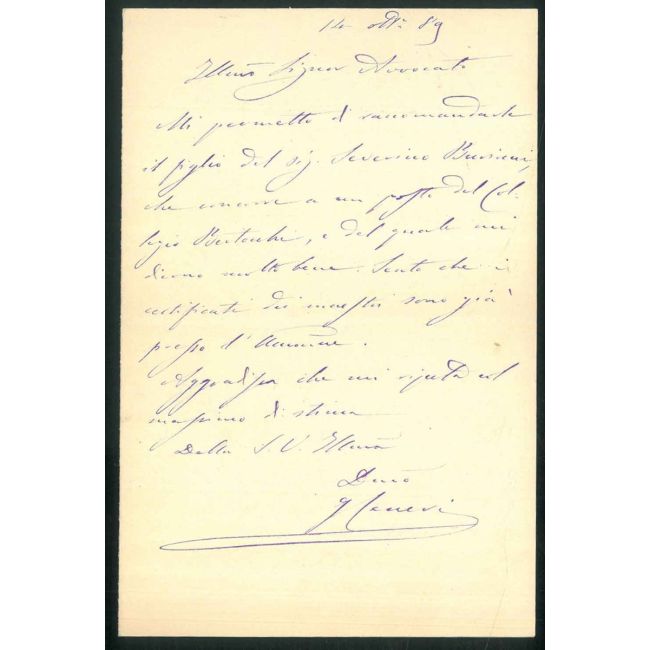 ott. 89
Illmo Signor Avvocato
Mi permetto di raccomandarle
il figlio del sig. Severino
che concorre a un posto del Col-
legio, e del quale mi
dicono molto bene. Sento che i
certificati dei maestri sono già
presso l'
Aggradisca che mi ripeta col
massimo di stima
Della S. V. Illma
Devmo